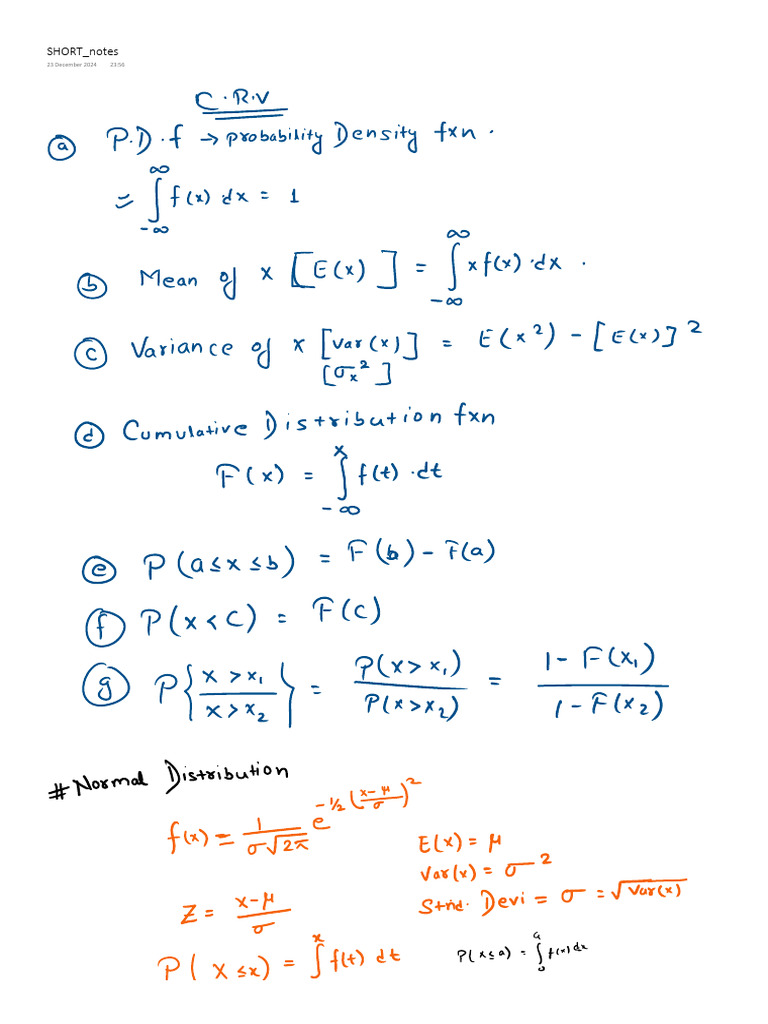 SHORT_notes
23 December 2024 23:56
C.R.V
(a) P.D.f → probability Density fxn.
= ∫_{-∞}^{∞} f(x) dx = 1
(b) Mean of x [E(x)] = ∫_{-∞}^{∞} x f(x)·dx.
(c) Variance of x [Var(x)] = E(x²) - [E(x)]²
[σₓ²]
(d) Cumulative Distribution fxn
F(x) = ∫_{-∞}^{x} f(t)·dt
(e) P(a≤x≤b) = F(b) - F(a)
(f) P(x<C) = F(C)
(g) P{x>x₁ / x>x₂} = P(x>x₁) / P(x>x₂) = 1-F(x₁) / 1-F(x₂)
# Normal Distribution
f(x) = 1/(σ√2π) e^{-1/2 ((x-μ)/σ)²}
E(x) = μ
Var(x) = σ²
Z = (x-μ)/σ
Strd. Devi = σ = √Var(x)
P(X≤x) = ∫^{x} f(t) dt
P(x≤a) = ∫_{0}^{a} f(x) dx